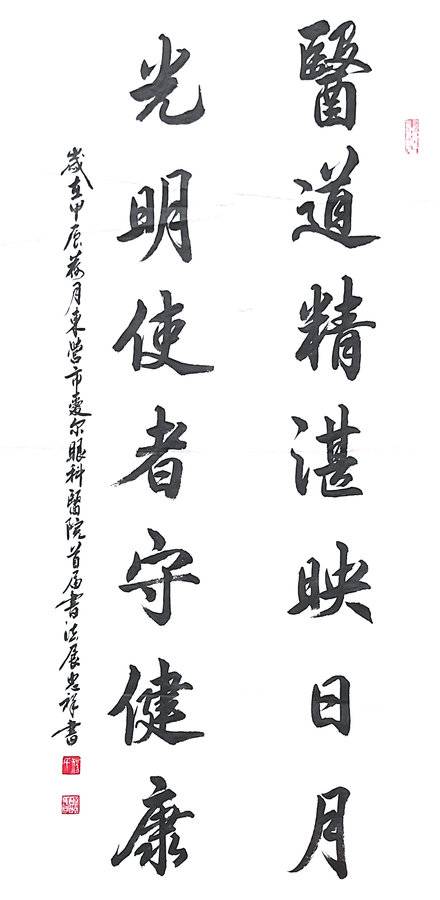 醫道精湛映日月
光明使者守健康
歲在甲辰荷月東營市愛尔眼科醫院首届書法展忠祥書